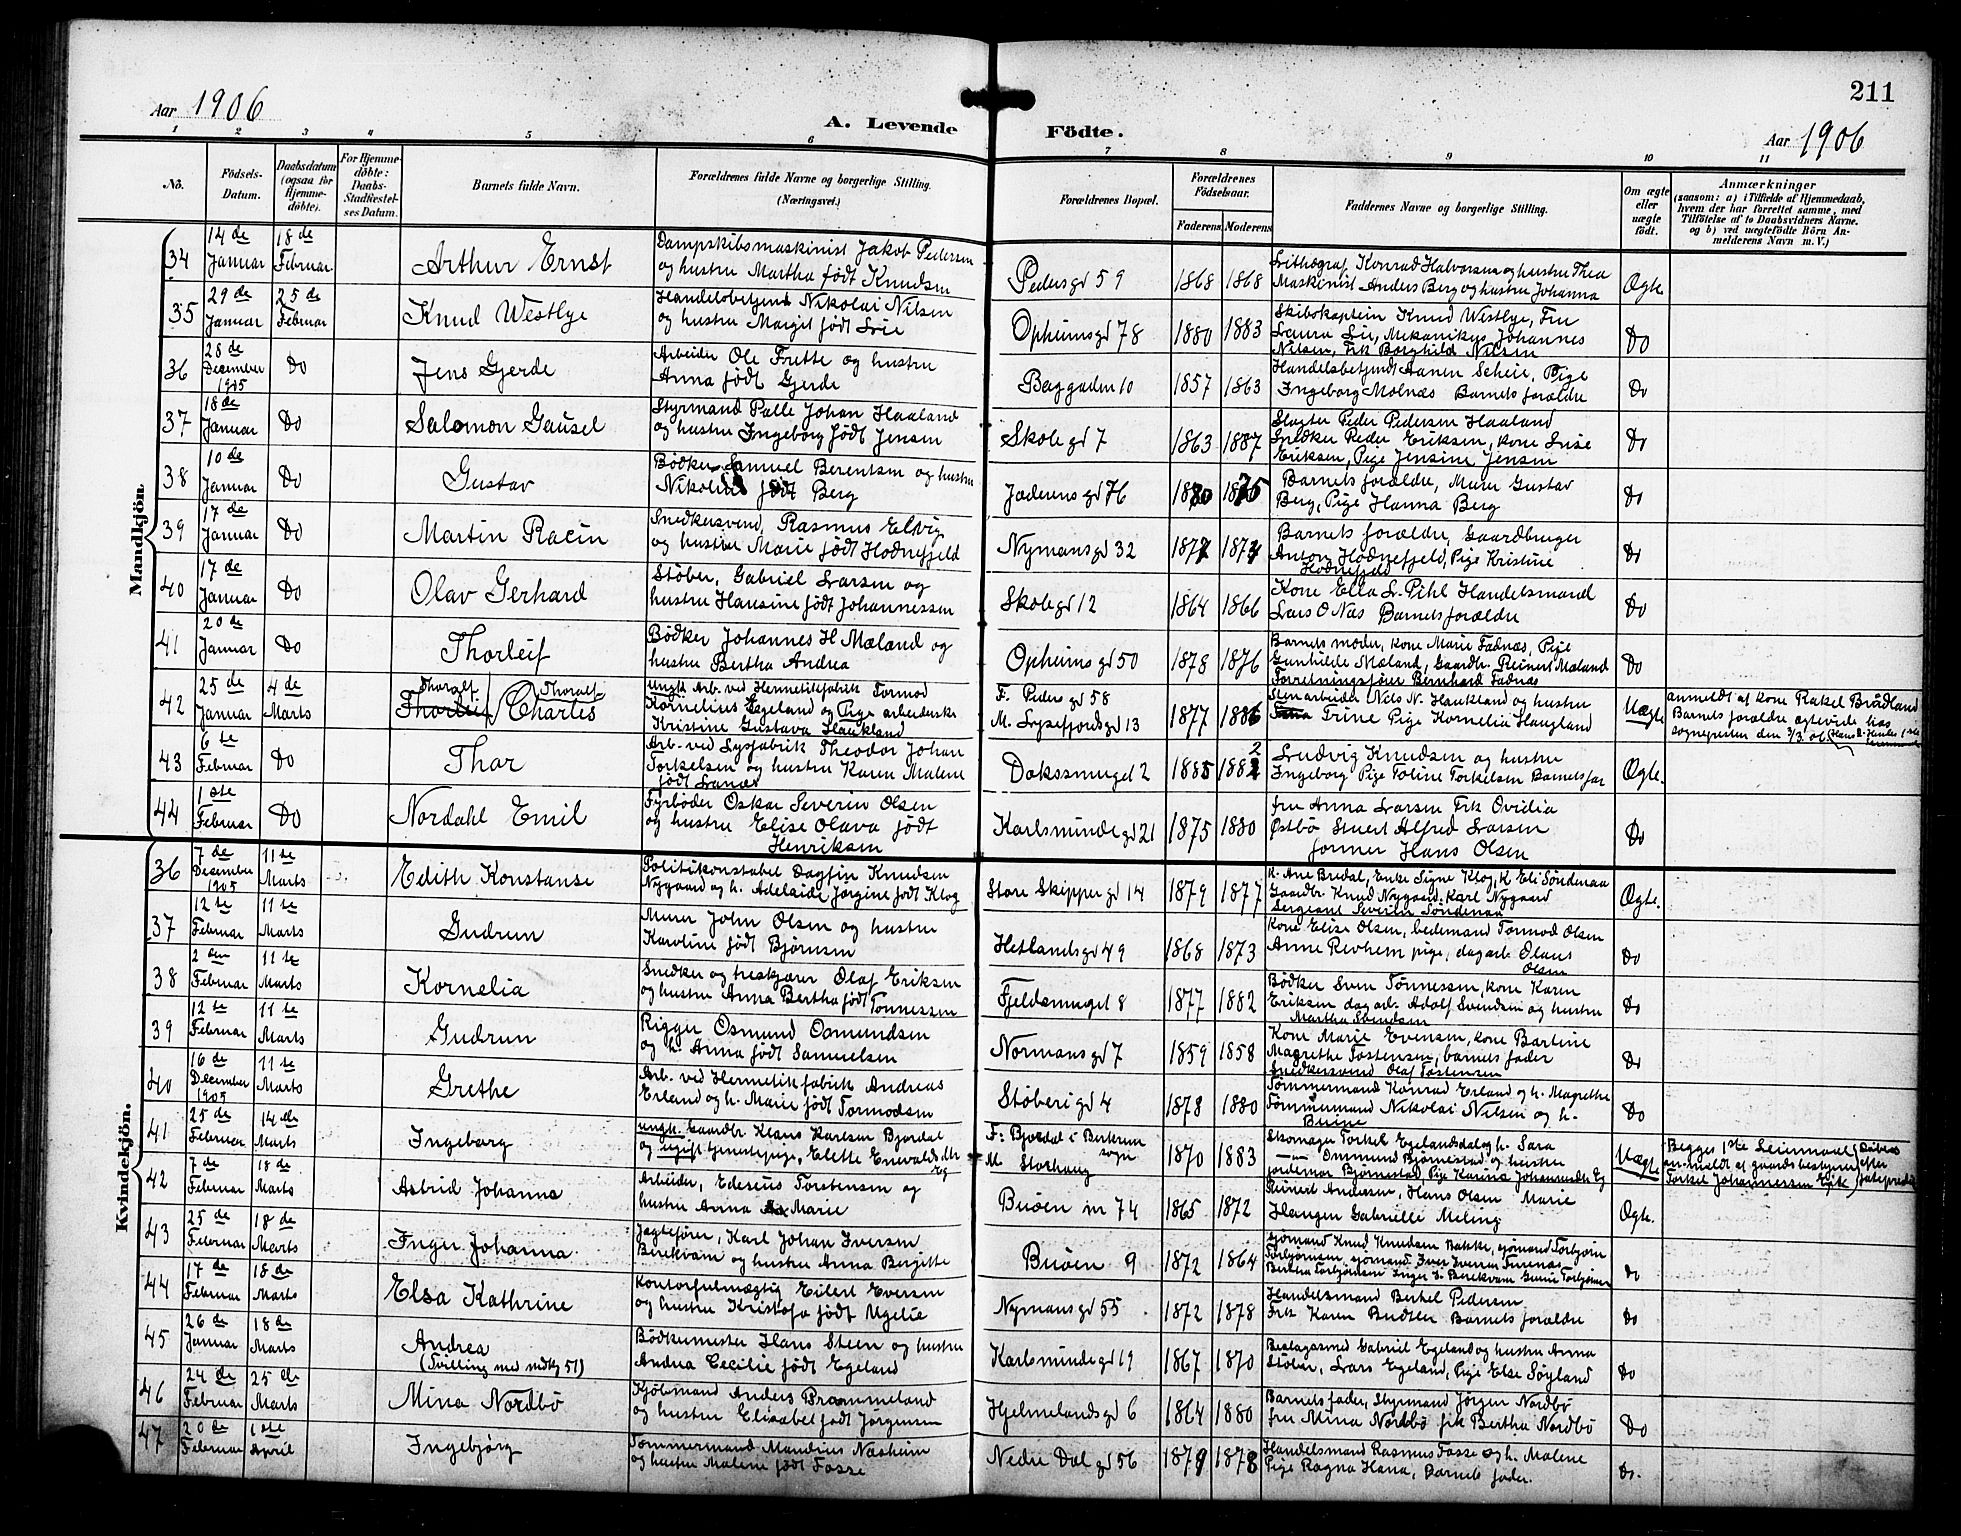 211
Aar 1906
A. Levende Födte.
Aar 1906
1 2 3 4 5 6 7 8 9 10 11
No.
Födsels-Datum.
Daabsdatum (ogsaa for Hjemme-döbte).
For Hjemme-döbte: Daabs-Stadfæstel-ses Datum.
Barnets fulde Navn.
Forældrenes fulde Navne og borgerlige Stilling. (Næringsvei.)
Forældrenes Bopæl.
Forældrenes Födselsaar.
Faderens. Moderens.
Faddernes Navne og borgerlige Stilling.
Om ægte eller uægte födt.
Anmærkninger
(saasom: a) i Tilfælde af Hjemmedaab, hvem der har forrettet samme, med Tilföielse af to Daabsvidners Navne. og b) ved uægtefödte Börn An-melderens Navn m. V.)
Mandkjön.
34 14de Januar 18de Februar Arthur Ernst Dampskibsmaskinist Jakob Pedersen og hustru Martha født Knudsen Pedersgd 59 1868 1868 Lithograf Konrad Halvorsen og hustru Thea Maskinist Anders Berg og hustru Johanna Ægte
35 29de Januar 25de Februar Knud Westlye Handelsbetjent Nikolai Nilsen og hustru Margit født Lie Opheimsgd 78 1880 1883 Skibskaptein Knud Westlye, Fru Laura Lie, Mekanikus Johannes Nilsen, Frk Borghild Nilsen Do
36 28de December 1905 Do Jens Gjerde Arbeider Ole Frette og hustru Anna født Gjerde Baggaden 10 1857 1863 Handelsbetjent Aanen Scheie, Pige Ingeborg Molnæs Barnets forældre Do
37 18de Januar Do Salomon Gausel Styrmand Palle Johan Haaland og hustru Ingeborg født Jensen Skolegd 7 1863 1887 Slagter Peder Pedersen Haaland Snedker Peder Eriksen, kone Lise Eriksen, Pige Jensine Jensen Do
38 10de Januar Do Gustav Bødker Samuel Berentsen og hustru født Berg Jæderensgd 76 1880 1875 Barnets forældre, Murer Gustav Berg, Pige Hanna Berg Do
39 17de Januar Do Martin Racin Snedkersvend, Rasmus Elvig og hustru Marie født Hodnefjeld Nymansgd 32 1877 1874 Barnets forældre, Gaardbruger Anton Hodnefjeld, Pige Kristine Hodnefjeld Do
40 17de Januar Do Olav Gerhard Støber, Gabriel Larsen og hustru Hansine født Johannessen Skolegd 12 1864 1866 Kone Ella L. Pihl Handelsmand Lars O Næs Barnets forældre Do
41 20de Januar Do Thorleif Bødker Johannes H Mæland og hustru Bertha Andrea Opheimsgd 50 1878 1876 Barnets moder, kone Marie Fadnæs, Pige Gunhilde Mæland, Gaardbr. Reinert Mæland Forretningsfører Bernhard Fadnæs Do
42 25de Januar 4de Marts Thoralf Thorleif Charles Thoralf ungk Arb. ved Hermetikfabrik Tormod Kornelius Egeland og Pige arbeiderske Kristine Gustava Haukland F. Pedersgd 58 M. Lysefjordsgd 13 1877 1886 Stenarbeider Nils N. Haukland og hustru Trine Pige Kornelia Haugland Uægte anmeldt af kone Rakel Brådland Barnets forældre ægteviede hos sognepresten den 3/3 06
43 6te Februar Do Thor Arb. ved Lysfabrik Theodor Johan Torkelsen og hustru Karen Malene født Lanæs Dokssmuget 2 1885 1882 2 Ludvig Knudsen og hustru Ingeborg Pige Toline Torkelsen Barnets far Ægte.
44 1ste Februar Do Nordahl Emil Fyrbøder Oskar Severin Olsen og hustru Elise Olava født Henriksen Karlsmindegd 21 1875 1880 fru Anna Larsen Frk Ovidia Østbø Stuert Alfred Larsen former Hans Olsen Do
Kvindekjön.
36 7de Desember 1905 11te Marts Edith Konstanse Politikonstabel Dagfin Knudsen Nygaard og h. Adelaide Jørgine født Klog Store Skippergd 14 1879 1877 K. Ane Bredal, Enke Signe Klog, K Eli Söndenaa Gaardbr Knud Nygaard. Karl Nygaard Sergeant Severin Söndenaa Ægte.
37 12te Februar 11te Marts Gudrun Murer John Olsen og hustru Karoline født Bjørnsen Hetlandsgd 49 1868 1873 Kone Elise Olsen, bedemand Tormod Olsen Anne Revheim pige, dagarb. Olaus Olsen Do
38 2den Februar 11te Marts Kornelia Snedker og treskjærer Olaf Eriksen og hustru Anna Bertha født Tonnessen Fjeldsmuget 8 1877 1882 Bødker Sven Tönnessen, kone Karen Eriksen dagarb. Adolf Svendsen og hustru Martha Svendsen Do
39 12te Februar 11te Marts Gudrun Rigger Osmund Osmundsen og h. Anna født Samuelsen Normansgd 7 1859 1858 Kone Marie Evensen, kone Bartine Magrethe Tostensen, barnets fader Snedkersvend Olaf Tostensen Do
40 16de December 1905 11te Marts Grethe Arb. ved Hermetikfabrik Andreas Erland og h. Marie født Tormodsen Støberigd 4 1878 1880 Tömmermand Konrad Erland og h. Magrethe Tömmermand Nikolai Nilsen og h. Do
41 25de Februar 14de Marts Ingeborg ungk. Gaardbr Klaus Karlsen Bjordal og ugift tjenestepige, Elette Enevaldsdtr Eg F: Bjordal i Bjerkrem sogn M Storhaug 1870 1883 Skomager Torkel Egelandsdal og h. Sara Ommund Bjørnestad og hustru jordemor Bjørnestad, Pige Karina Johannesdtr Eg Uægte Begges 1ste Leiermaal anmeldt af gaardsbestyrer Torkel Johannessen Egk
42 7de Februar 18de Marts Astrid Johanna Arbeider, Edevius Torstensen og hustru Anna Marie Buøen nr 74 1865 1872 Reinert Andersen, Hans Olsen Marie Haugen Gabrielle Meling Ægte.
43 25de Februar 18de Marts Inger Johanna Jagtefører, Karl Johan Iversen Berekvam og hustru Anna Bergitte Buøen 9 1872 1864 sjømand Knud Knudsen Bakke, sjømand Torbjörn Torbjörnsen sjömand Iver Iversen Furenæs Bertha Torbjörnsen Inger Berekvam Gurine Torbjörnsen Do
44 17de Februar 18de Marts Elsa Kathrine Kontorfulmægtig Eilert Eversen og hustru Kristofa født Ugelie Nymansgd 55 1872 1878 Handelsmand Berthel Pedersen Frk Karen Bentler Barnets forældre Do
45 26de Januar 18de Marts Andrea (Tvilling med mdkj 51) Bødkermester Hans Steen og hustru Andrea Cecilie født Egeland Karlsmindegd 19 1867 1870 Beslagssmed Gabriel Egeland og hustru Anna Stöber, Lars Egeland, Pige Else Søyland Do
46 24de Februar 25de Marts Mina Nordbö Kjöbmand Anders Brommeland og hustru Elisabet født Jørgensen Hjelmelandsgd 6 1864 1880 Barnets fader, Styrmand Jörgen Nordbö fru Mina Nordbø frk Bertha Nordbö Do
47 20de Februar 1ste April Ingebjørg Tømmermand Mandius Næsheim og hustru Malene født Fosse Nedre Dalgd 56 1879 1878 Handelsmand Rasmus Fosse og h. Malene Pige Ragna Hana, Barnets fader. Do.